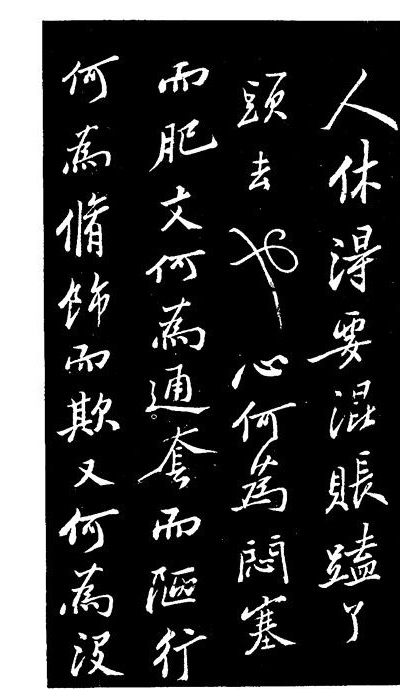 人休淂要混賬了
頭去也心何為悶塞
而肥文何為通套而陋行
何為脩飾而欺又何為沒